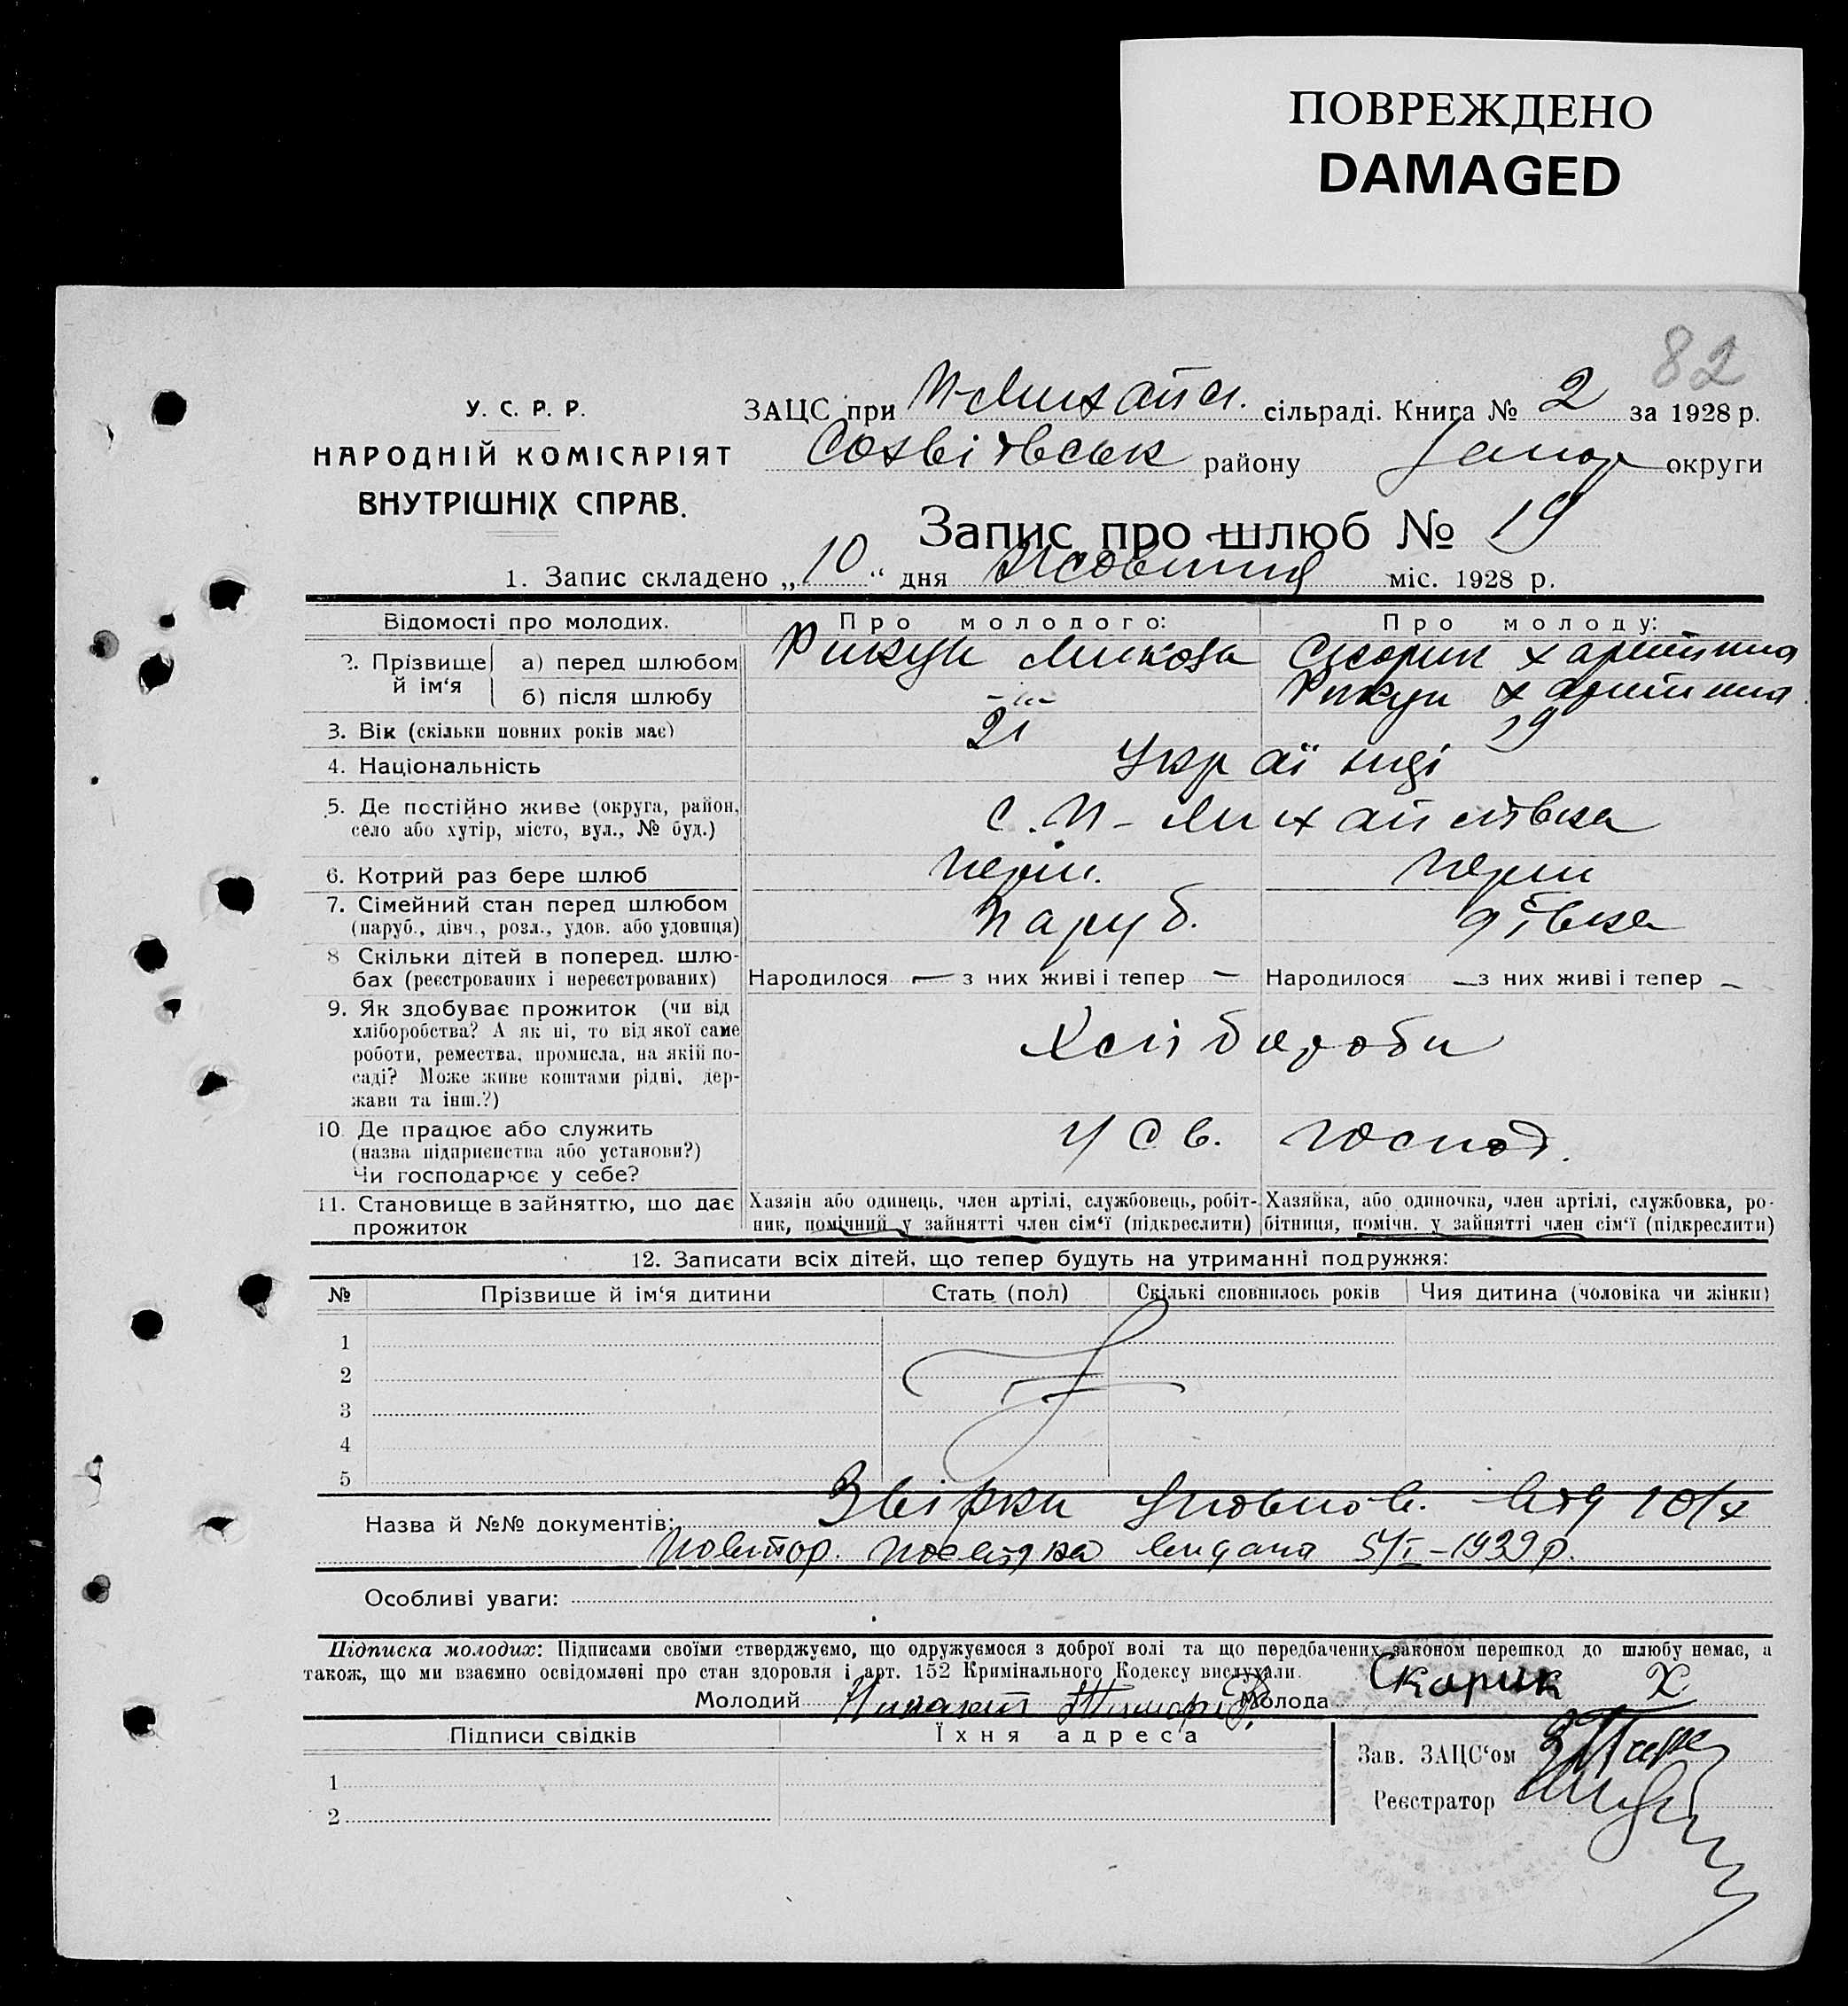 ПОВРЕЖДЕНО
DAMAGED
82
У. С. Р. Р.
НАРОДНІЙ КОМІСАРІЯТ
ВНУТРІШНІХ СПРАВ.
ЗАЦС при Н-Михайл. сільраді. Книга № 2 за 1928 р.
району Запор округи
Запис про шлюб № 19
1. Запис складено „10“ дня Жовтня міс. 1928 р.
Відомості про молодих. Про молодого: Про молоду:
2. Прізвище й ім‘я
а) перед шлюбом Рикун Микола Скорик Харитина
б) після шлюбу -„- Рикун Харитина
3. Вік (скільки повних років має) 21 19
4. Національність Українці
5. Де постійно живе (округа, район, село або хутір, місто, вул., № буд.) с. Н-Михайлівка
6. Котрий раз бере шлюб перш. перш
7. Сімейний стан перед шлюбом (паруб., дівч., розл., удов. або удовиця) Паруб. дівка
8 Скільки дітей в поперед. шлюбах (реєстрованих і нереєстрованих) Народилося — з них живі і тепер — Народилося — з них живі і тепер —
9. Як здобуває прожиток (чи від хліборобства? А як ні, то від якої саме роботи, ремества, промисла, на якій посаді? Може живе коштами рідні, держави та інш.?) Хлібороби
10. Де працює або служить (назва підприєнства або установи?) Чи господарює у себе? У св. господ.
11. Становище в зайняттю, що дає прожиток
Хазяін або одинець, член артілі, службовець, робітник, помічний у зайнятті член сім‘ї (підкреслити)
Хазяйка, або одиночка, член артілі, службовка, робітниця, помічн. у зайнятті член сім‘ї (підкреслити)
12. Записати всіх дітей, що тепер будуть на утриманні подружжя:
№ Прізвише й ім‘я дитини Стать (пол) Скількі сповнилось років Чия дитина (чоловіка чи жінки)
1
2
3
4
5
Назва й №№ документів: Звірки Уповнов. від 10/X
Повтор. посвідка видана 5/I-1939 р.
Особливі уваги:
Підписка молодих: Підписами своїми стверджуємо, що одружуємося з доброї волі та що передбачених законом перешкод до шлюбу немає, а
також, що ми взаємно освідомлені про стан здоровля і арт. 152 Кримінального Кодексу вислухали.
Молодий Молода Скорик Х
Підписи свідків Їхня адреса
Зав. ЗАЦС‘ом
Реєстратор
1
2